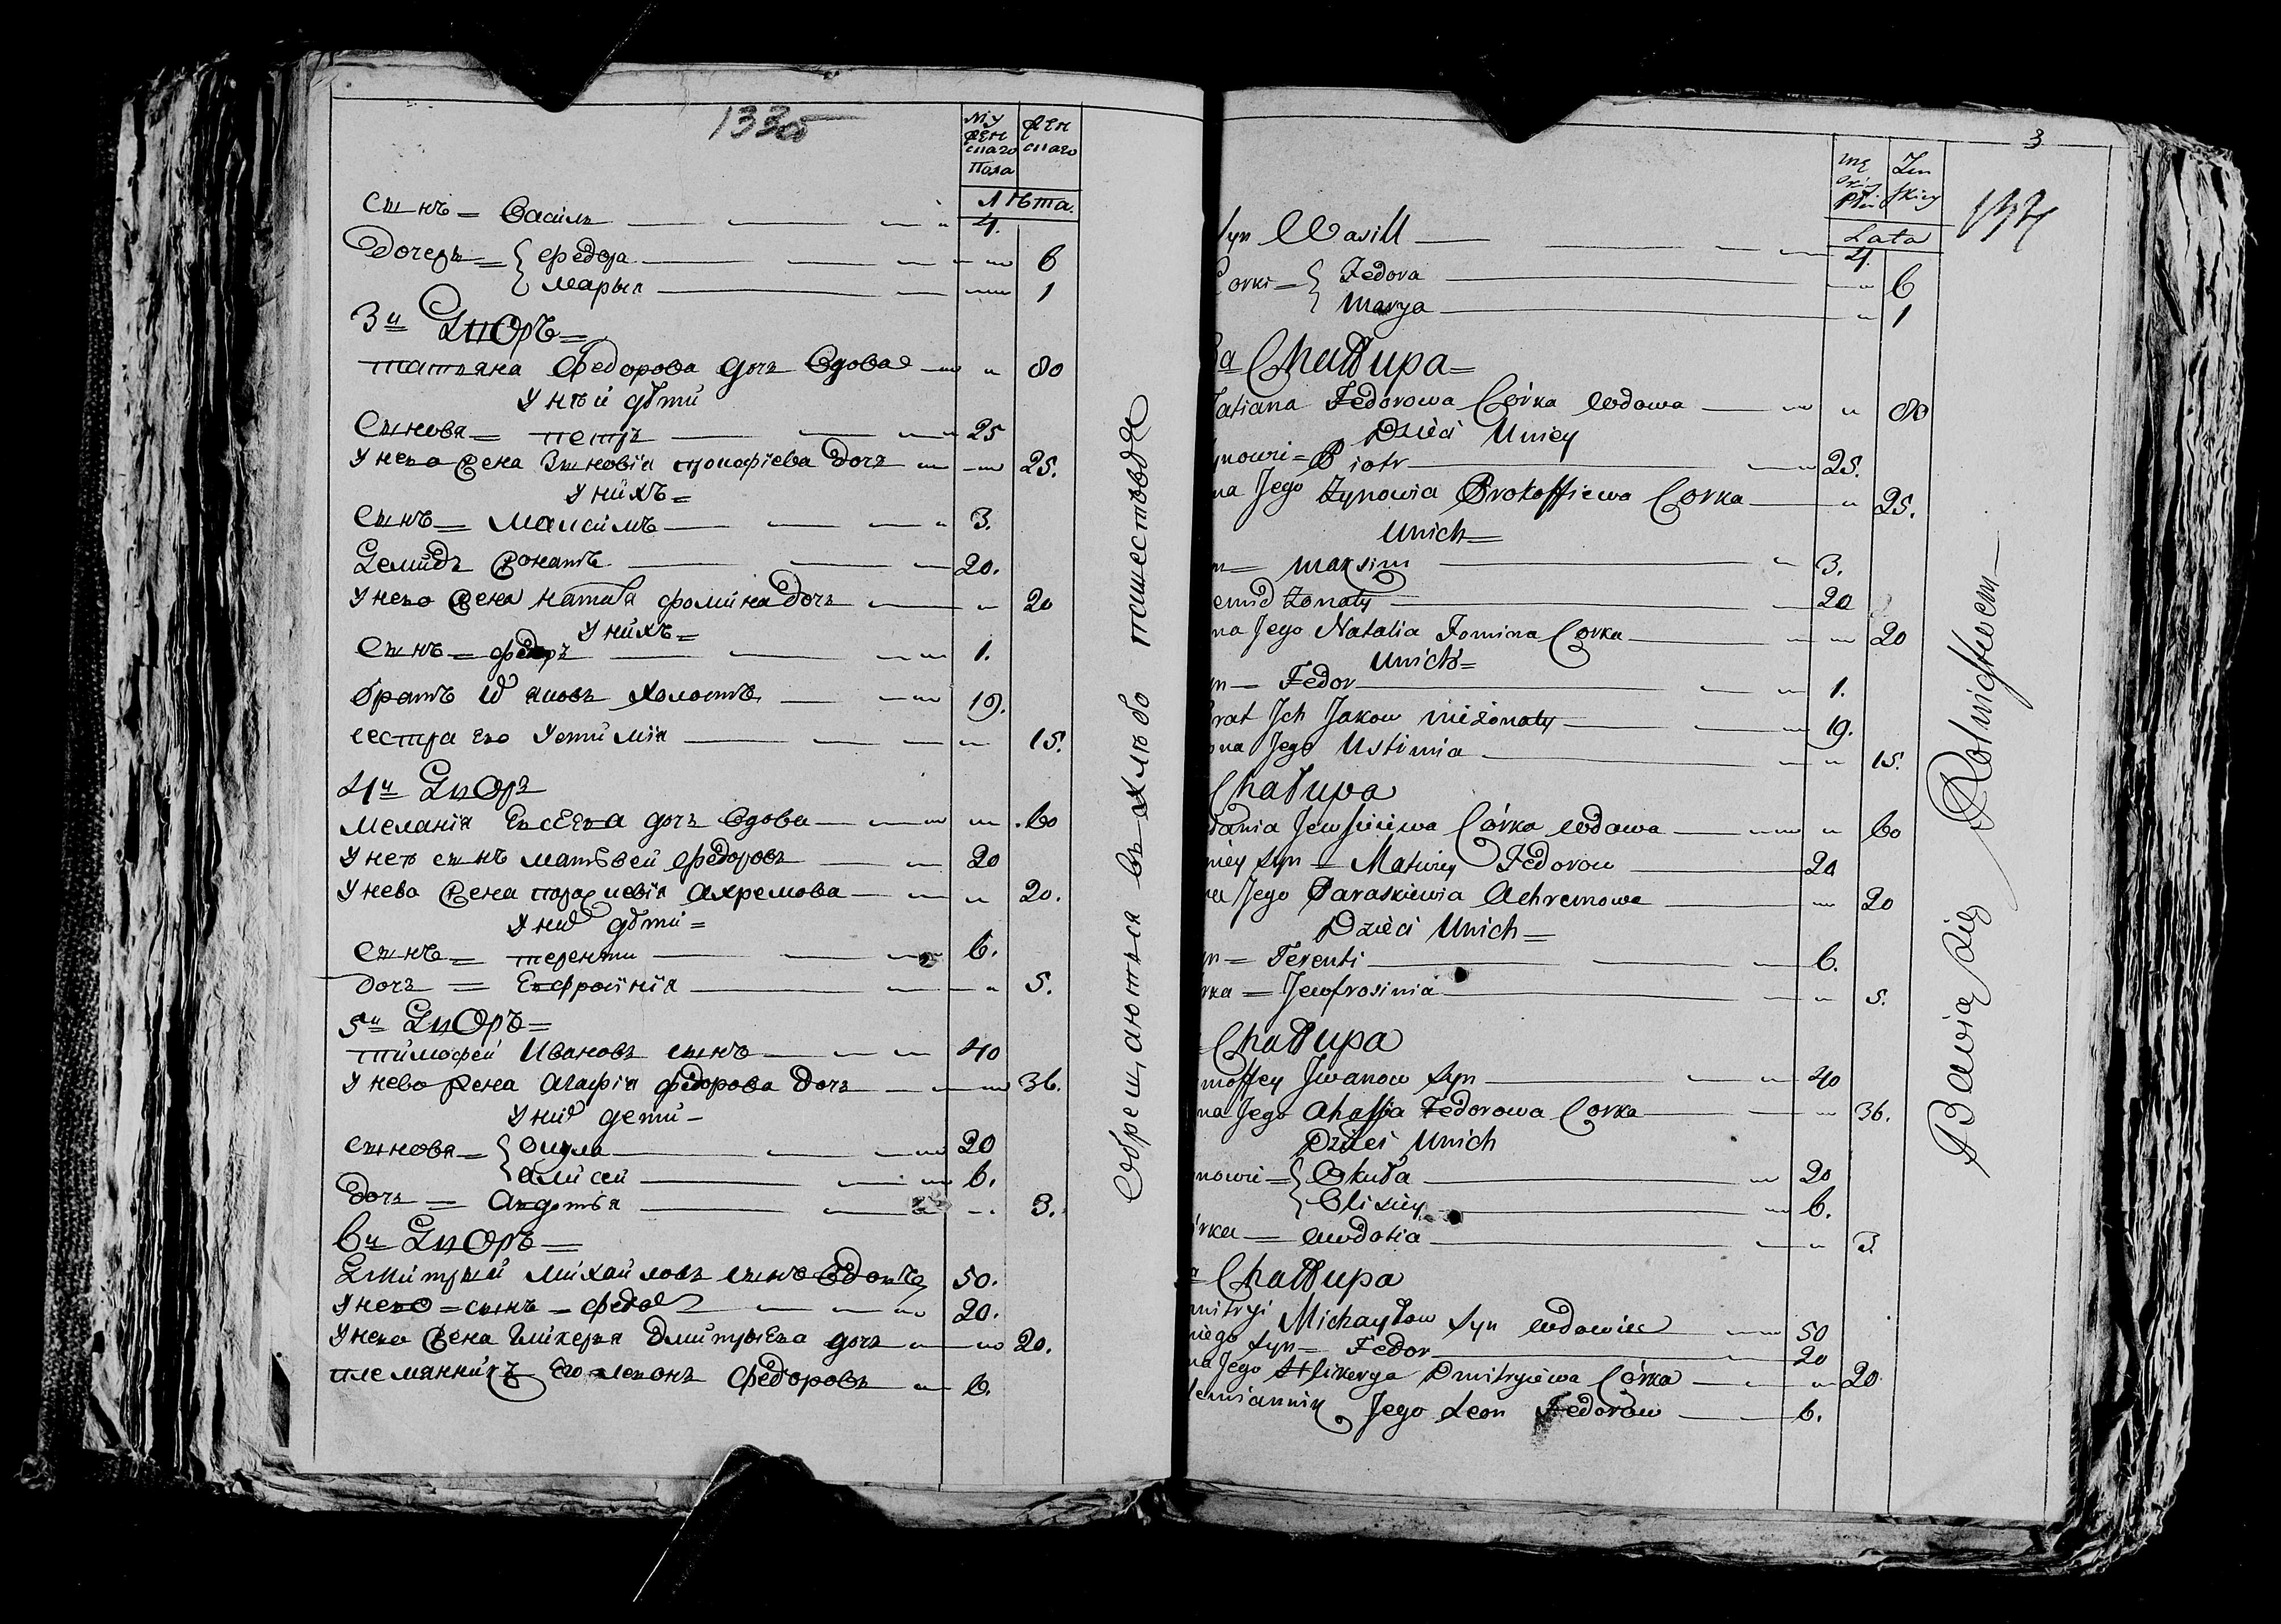 133
Му
жен
скаго
Пола
жен
скаго
Лѣта.
Сынъ = Василь 4.
Дочерь = Федора 6
Марья 1
3й Дворъ =
Татьяна Федорова дочь вдова 80
У нѣй дѣти
Сынова = Петръ 25
У нево жена Зыновія Прокофіева дочь 25.
У нихъ =
Сынъ = Максимъ 3.
Демидъ жонатъ 20.
У нево жена Наталя Фомина дочь 20
У нихъ =
Сынъ = Федоръ 1.
братъ их Яковъ холостъ 19.
сестра ево Устимія 15.
4й Дворъ
Меланія Евсеева дочь вдова 60
У нея сынъ Матвей Федоровъ 20
У нево жена Параскевія Ахремова 20.
У них дѣти =
Сынъ = Теренти 6.
дочь = Евфросинія 5.
5й Дворъ =
Тимофей Ивановъ сынъ 40
У нево жена Агафія Федорова дочь 36.
У них дети =
Сынова = Окула 20
Алисей 6.
Дочь = Авдотья 3.
6й Дворъ =
Дмитрый Михайловъ сынъ вдовец 50.
У нево = сынъ = Федор 20.
У нево жена Гликерья Дмитрыева дочь 20.
племянникъ Его Левонъ Федоровъ 6.
Собрещаються въ хлѣбо пашествовже
3
Męskiey Płci
Żenskiey
Lata
syn Wasill 4.
Corki = Fedora 6
Marya 1
3a Chałłupa =
Tatiana Fedorowa Córka wdowa 80
Dzieci Uniey
ynowi = Piotr 25.
na Jego Zynowia Prokoffiewa Corka 25.
Unich =
n = Maksim 3.
emid żonaty 20
na Jego Natalia Fomina Corka 20
Unich =
yn = Fedor 1.
rat Jch Jakow nieżonaty 19.
ona Jego Ustimia 15.
Chałupa
łania Jewsieiewa Córka wdowa 60
niey syn = Matwiey Fedorow 20
na Jego Paraskiewia Achremowa 20
Dzieci Unich =
yn = Terenti 6.
rka = Jewfrosinia 5.
Chałłupa
moffey Jwanow syn 40
na Jego Ahaffia Fedorowa Corka 36.
Dzieci Unich
nowie = Okuła 20
Elisiey 6.
órka = Awdotia 3
Chałłupa
mitryi Michayłow syn wdowiec 50
niego syn = Fedor 20
na Jego Hlikerya Dmitryiewa Córka 20
lemiannik Jego Leon Fedorow 6.
Bawią się Rolnictwem